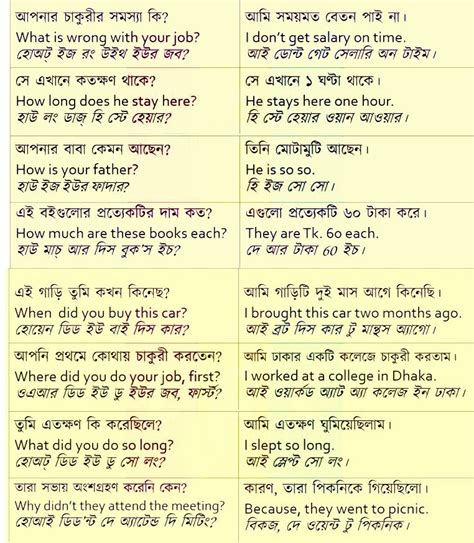 আপনার চাকুরীর সমস্যা কি?
What is wrong with your job?
হোঅট্ ইজ রং উইথ ইউর জব?
আমি সময়মত বেতন পাই না।
I don't get salary on time.
আই ডোন্ট গেট সেলারি অন টাইম।
সে এখানে কতক্ষণ থাকে?
How long does he stay here?
হাউ লং ডাজ্ হি স্টে হেয়ার?
সে এখানে ১ ঘণ্টা থাকে।
He stays here one hour.
হি স্টে হেয়ার ওয়ান আওয়ার।
আপনার বাবা কেমন আছেন?
How is your father?
হাউ ইজ ইউর ফাদার?
তিনি মোটামুটি আছেন।
He is so so.
হি ইজ সো সো।
এই বইগুলোর প্রত্যেকটির দাম কত?
How much are these books each?
হাউ মাচ্ আর দিস বুক'স ইচ?
এগুলো প্রত্যেকটি ৬০ টাকা করে।
They are Tk. 60 each.
দে আর টাকা 60 ইচ।
এই গাড়ি তুমি কখন কিনেছ?
When did you buy this car?
হোয়েন ডিড ইউ বাই দিস কার?
আমি গাড়িটি দুই মাস আগে কিনেছি।
I brought this car two months ago.
আই ব্রট দিস কার টু মান্থস অ্যাগো।
আপনি প্রথমে কোথায় চাকুরী করতেন?
Where did you do your job, first?
ওএআর ডিড ইউ ডু ইউর জব, ফার্স্ট?
আমি ঢাকার একটি কলেজে চাকুরী করতাম।
I worked at a college in Dhaka.
আই ওয়ার্কড অ্যাট অ্যা কলেজ ইন ঢাকা।
তুমি এতক্ষণ কি করেছিলে?
What did you do so long?
হোঅট্ ডিড ইউ ডু সো লং?
আমি এতক্ষণ ঘুমিয়েছিলাম।
I slept so long.
আই স্লেপ্ট সো লং।
তারা সভায় অংশগ্রহণ করেনি কেন?
Why didn't they attend the meeting?
হোআই ডিড'ন্ট দে অ্যাটেন্ড দি মিটিং?
কারণ, তারা পিকনিকে গিয়েছিলো।
Because, they went to picnic.
বিকজ, দে ওয়েন্ট টু পিকনিক।